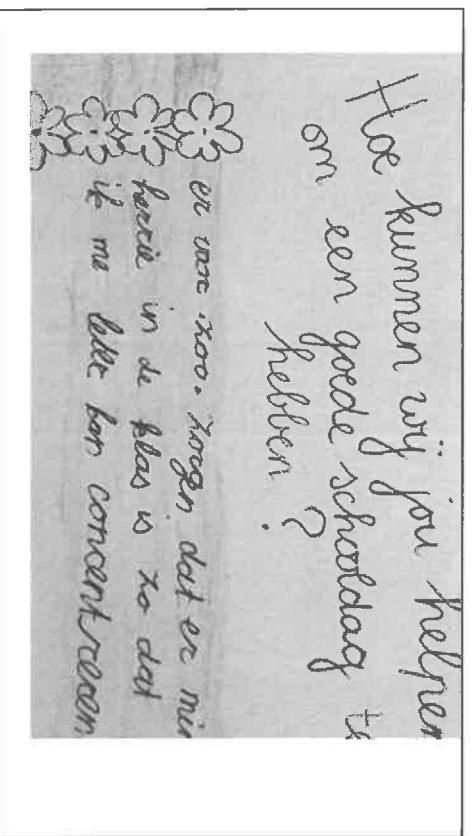 Hoe kunnen wij jou helpen
om een goede schooldag te
hebben?
er voor zorgen dat er min
herrie in de klas is zo dat
ik me kan concentreren